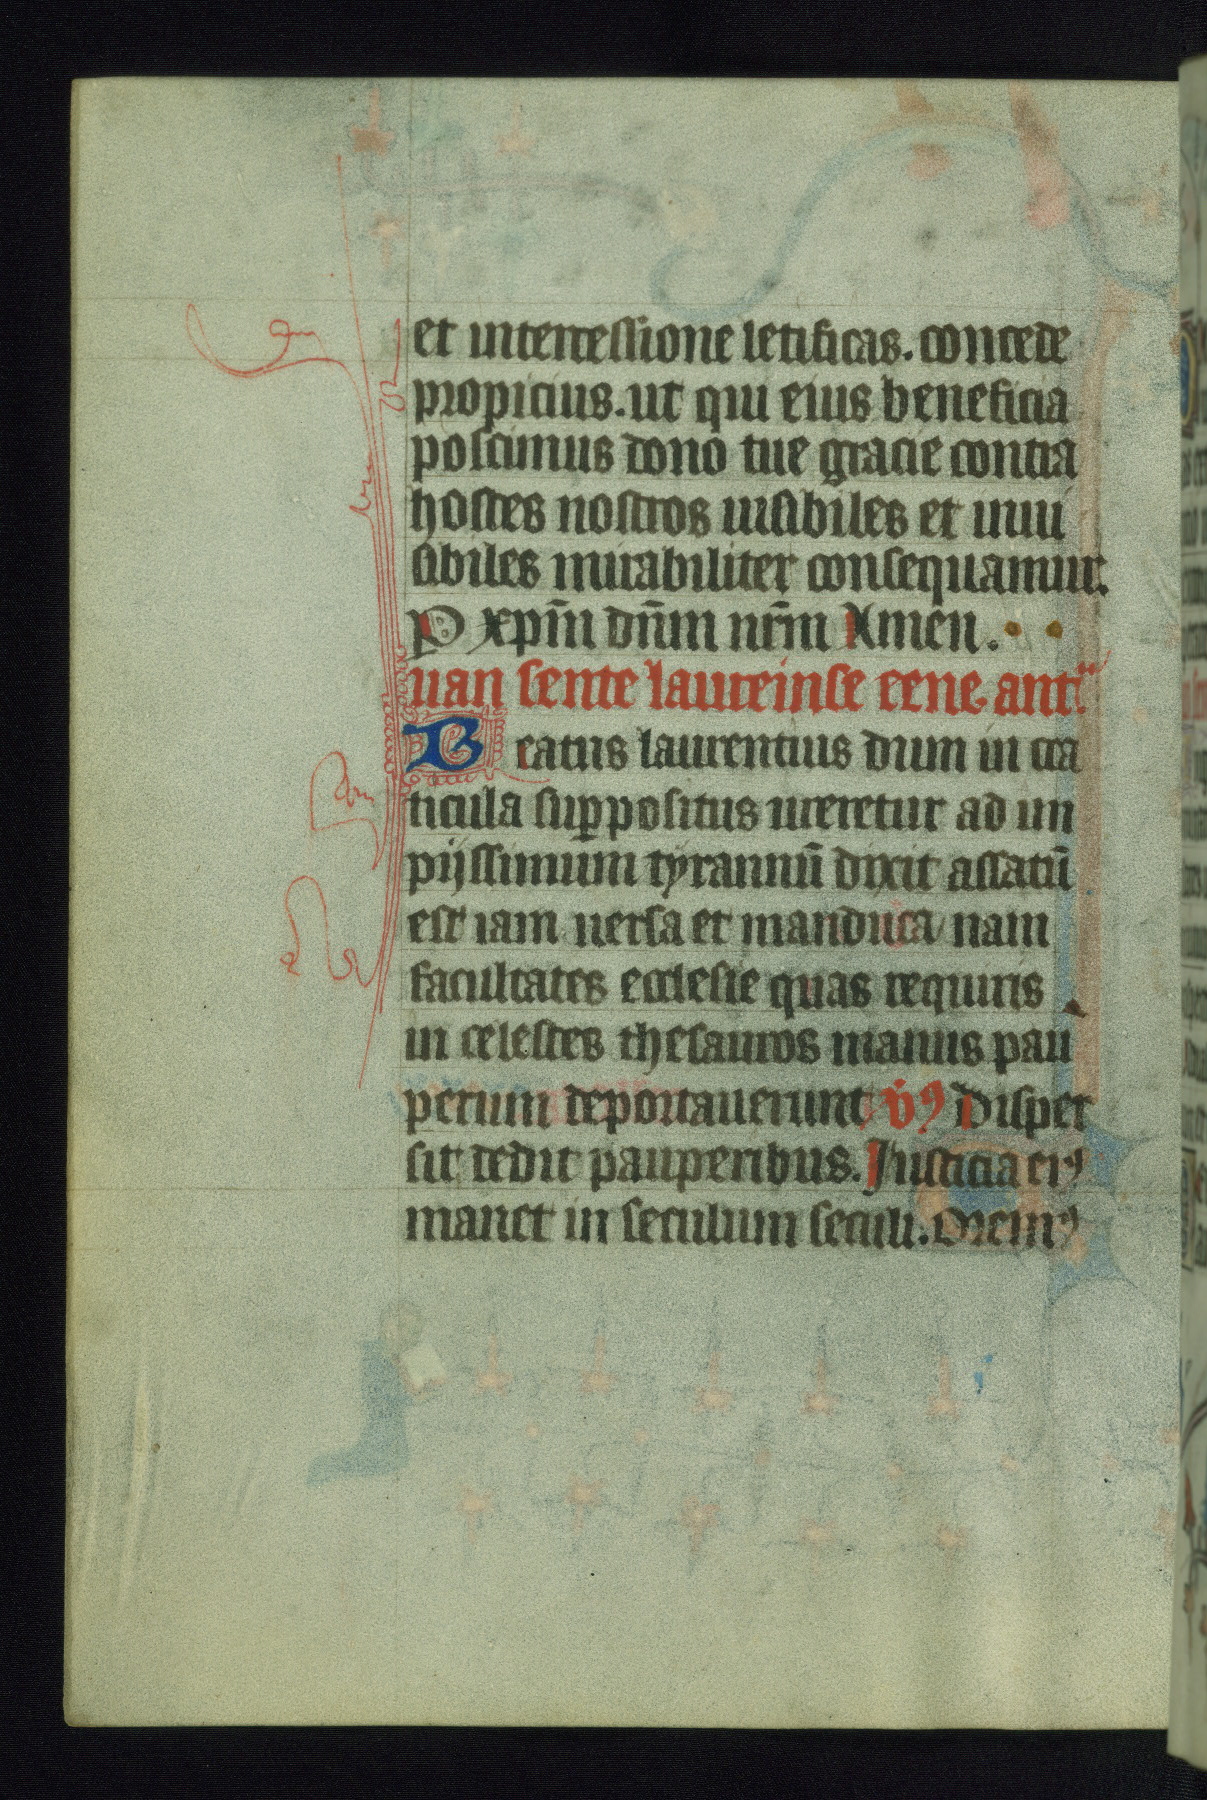 et intercessione letificas. concede
propicius. ut qui eius beneficia
poscimus dono tue gracie contra
hostes nostros uisibiles et inui
sibiles mirabiliter consequamur.
P xp̄m dn̄m nr̄m Amen.
uan sente laureinse eene ant
Beatus laurentius dum in cra
ticula suppositus ureretur ad im
pijssimum tyrannū dixit assatū
est iam uersa et manduca nam
facultates ecclesie quas requiris
in celestes thesauros manus pau
perum deportauerunt v̇ꝰ Disper
sit dedit pauperibus. Justicia eiꝰ
manet in seculum seculi. Oremꝰ